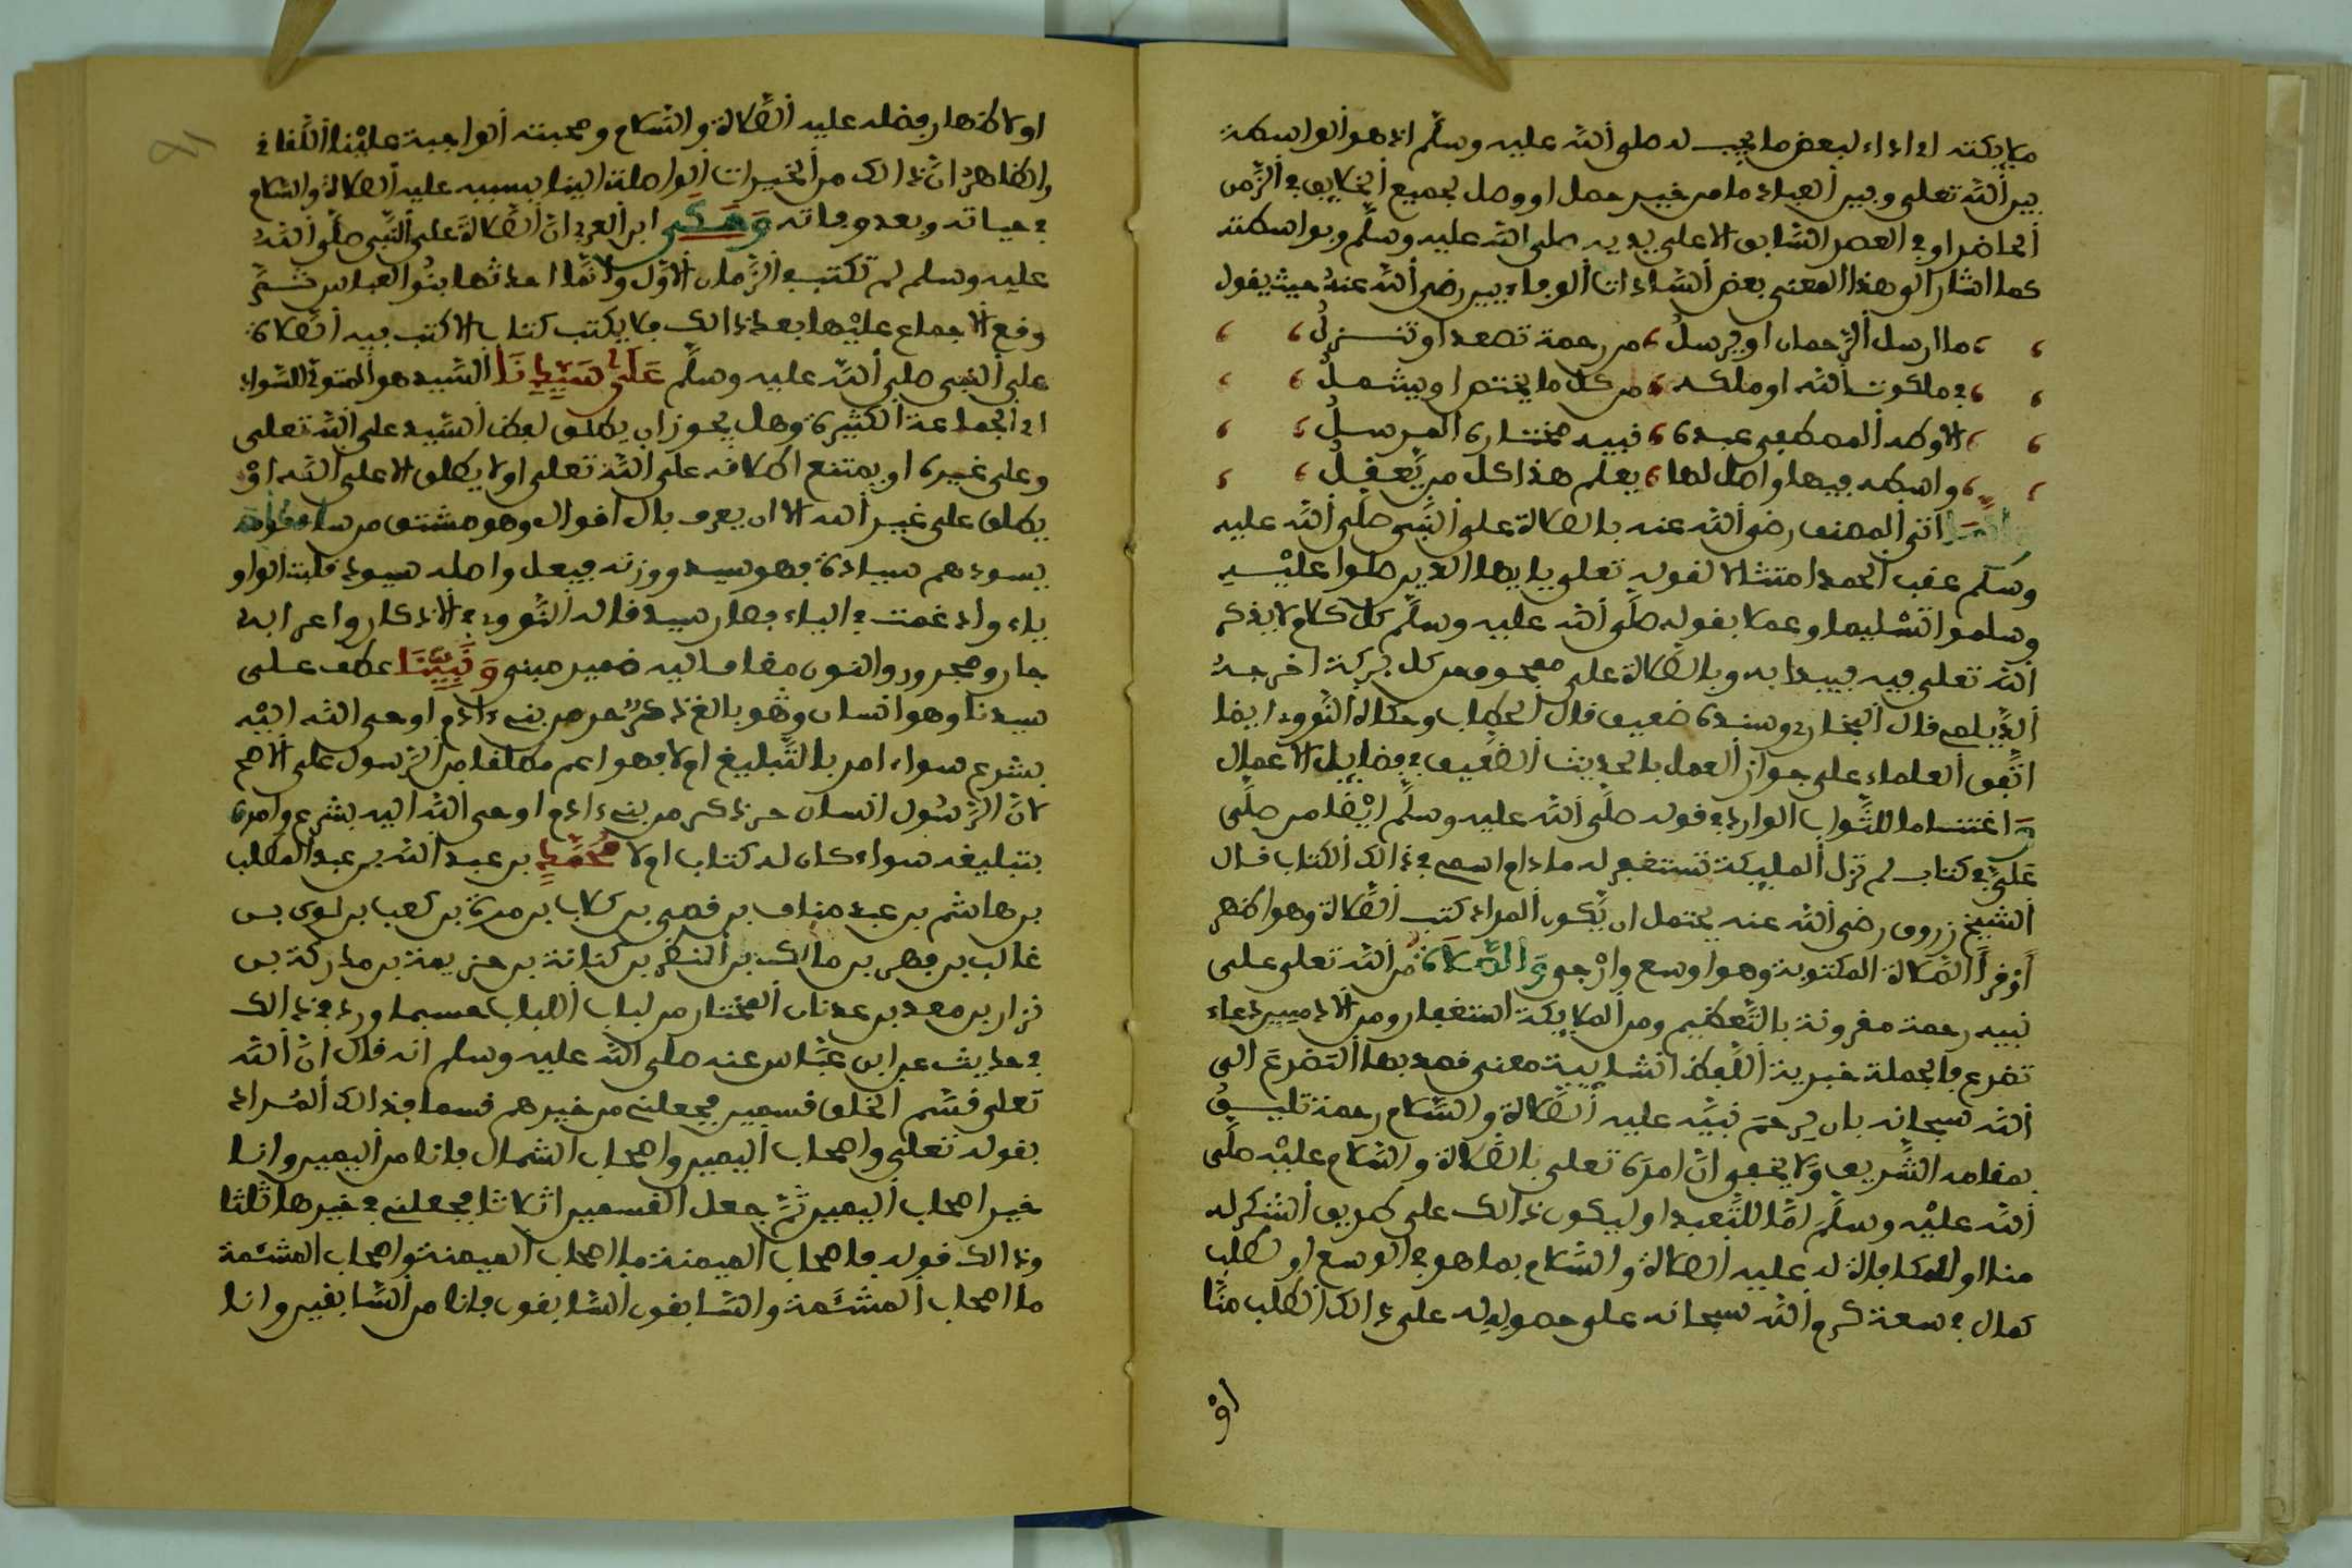 ملايكته اي اداء لبعض ما يجب له صلى الله عليه وسلم اذ هو الواسطة
بين الله تعلى وبين العباد ما من خير حصل او وصل لجميع الخلايق في الزمن
الحاضر او في العصر السابق الا على يديه صلى الله عليه وسلم وبواسطته
كما اشار الى هذا المعنى بعض السادات الوفاءيين رضي الله عنه حيث يقول
ما ارسل الرحمان او يرسل ، من رحمة تصعد او تنزل
في ملكوت الله او ملكه ، من كل ما يختص او يشمل
الا وطه المصطفى عبده ، نبيه مختاره المرسل
واسطه فيها واصل لها ، يعلم هذا كل من يعقل
اتى المصنف رضي الله عنه بالصلاة على النبي صلى الله عليه
وسلم عقب الحمد امتثالا لقوله تعلى يا ايها الذين صلوا عليه
وسلموا تسليما وعملا بقوله صلى الله عليه وسلم كل كلام لا يذكر
الله تعلى فيه فيبدا به وبالصلاة على ممحوق من كل بركة اخرجه
الديلمي قال البخاري وسنده ضعيف قال الحطاب وحكاه النووي ايضا
اتفق العلماء على جواز العمل بالحديث الضعيف في فضايل الاعمال
واغتناما للثواب الوارد في قوله صلى الله عليه وسلم ايضا من صلى
علي في كتاب لم تزل المليكة تستغفر له ما دام اسمي في ذالك الكتاب قال
الشيخ زروق رضي الله عنه يحتمل ان يكون المراد كتب الصلاة وهو اظهر
او قرأ الصلاة المكتوبة وهو اوسع وارجى والصلاة من الله تعلى على
نبيه رحمة مقرونة بالتعظيم ومن الملايكة استغفار ومن الادميين دعاء
تضرع فالجملة خبرية اللفظ انشايية معنى قصد بها التضرع الى
الله سبحانه بان يرحم نبيه عليه الصلاة والسلام رحمة تليق
بمقامه الشريف ولا يخفى ان امره تعلى بالصلاة والسلام عليه صلى
الله عليه وسلم اما للتعبد او ليكون ذالك على طريق الشكر له
منا او للمكافاة له عليه الصلاة والسلام بما هو في الوسع او لطلب
كمال في سعة كرم الله سبحانه على حصوله له على ذالك الطلب منا
او
او لاظهار فضله عليه الصلاة والسلام ومحبته الواجبة علينا اللقاني
والظاهر ان ذالك من الخيرات الواصلة الينا بسببه عليه الصلاة والسلام
في حياته وبعد وفاته وحكى ابن العربي ان الصلاة على النبي صلى الله
عليه وسلم لم تكتب في الزمان الاول وانما احدثها بنوا العباس ثم
وقع الاجماع عليها بعد ذالك فلا يكتب كتاب الا كتب فيه الصلاة
على النبي صلى الله عليه وسلم على سيدنا السيد هو المتولي للسواد
اي الجماعة الكثيرة وهل يجوز ان يطلق لفظ السيد على الله تعلى
وعلى غيره او يمتنع اطلاقه على الله تعلى او لا يطلق الا على الله او
يطلق على غير الله الا ان يعرف بال اقوال وهو مشتق من ساد قومه
يسودهم سيادة فهو سيد ووزنه فيعل واصله سيود قلبت الواو
ياء وادغمت في الياء فصار سيد قاله النووي في الاذكار واعرابه
جار ومجرور والنون مضاف اليه ضمير مبني ونبينا عطف على
سيدنا وهو انسان وهو بالغ ذكر حر من بني ءادم اوحى الله اليه
بشرع سواء امر بالتبليغ او لا فهو اعم مطلقا من الرسول على الاصح
لان الرسول انسان حر ذكر من بني ءادم اوحى الله اليه بشرع وامره
بتبليغه سواء كان له كتاب او لا محمد بن عبد الله بن عبد المطلب
بن هاشم بن عبد مناف بن قصي بن كلاب بن مرة بن كعب بن لوي بن
غالب بن فهر بن مالك بن النضر بن كنانة بن خزيمة بن مدركة بن
نزار بن معد بن عدنان المختار من لباب اللباب حسبما ورد في ذالك
في حديث عن ابن عباس عنه صلى الله عليه وسلم انه قال ان الله
تعلى قسم الخلق قسمين فجعلني من خيرهم قسما فذالك المراد
بقوله تعلى واصحاب اليمين واصحاب الشمال فانا من اليمين وانا
خير اصحاب اليمين ثم جعل القسمين اثلاثا فجعلني في خيرها ثلثا
وذالك قوله فاصحاب الميمنة ما اصحاب الميمنة واصحاب المشئمة
ما اصحاب المشئمة والسابقون السابقون فانا من السابقين وانا